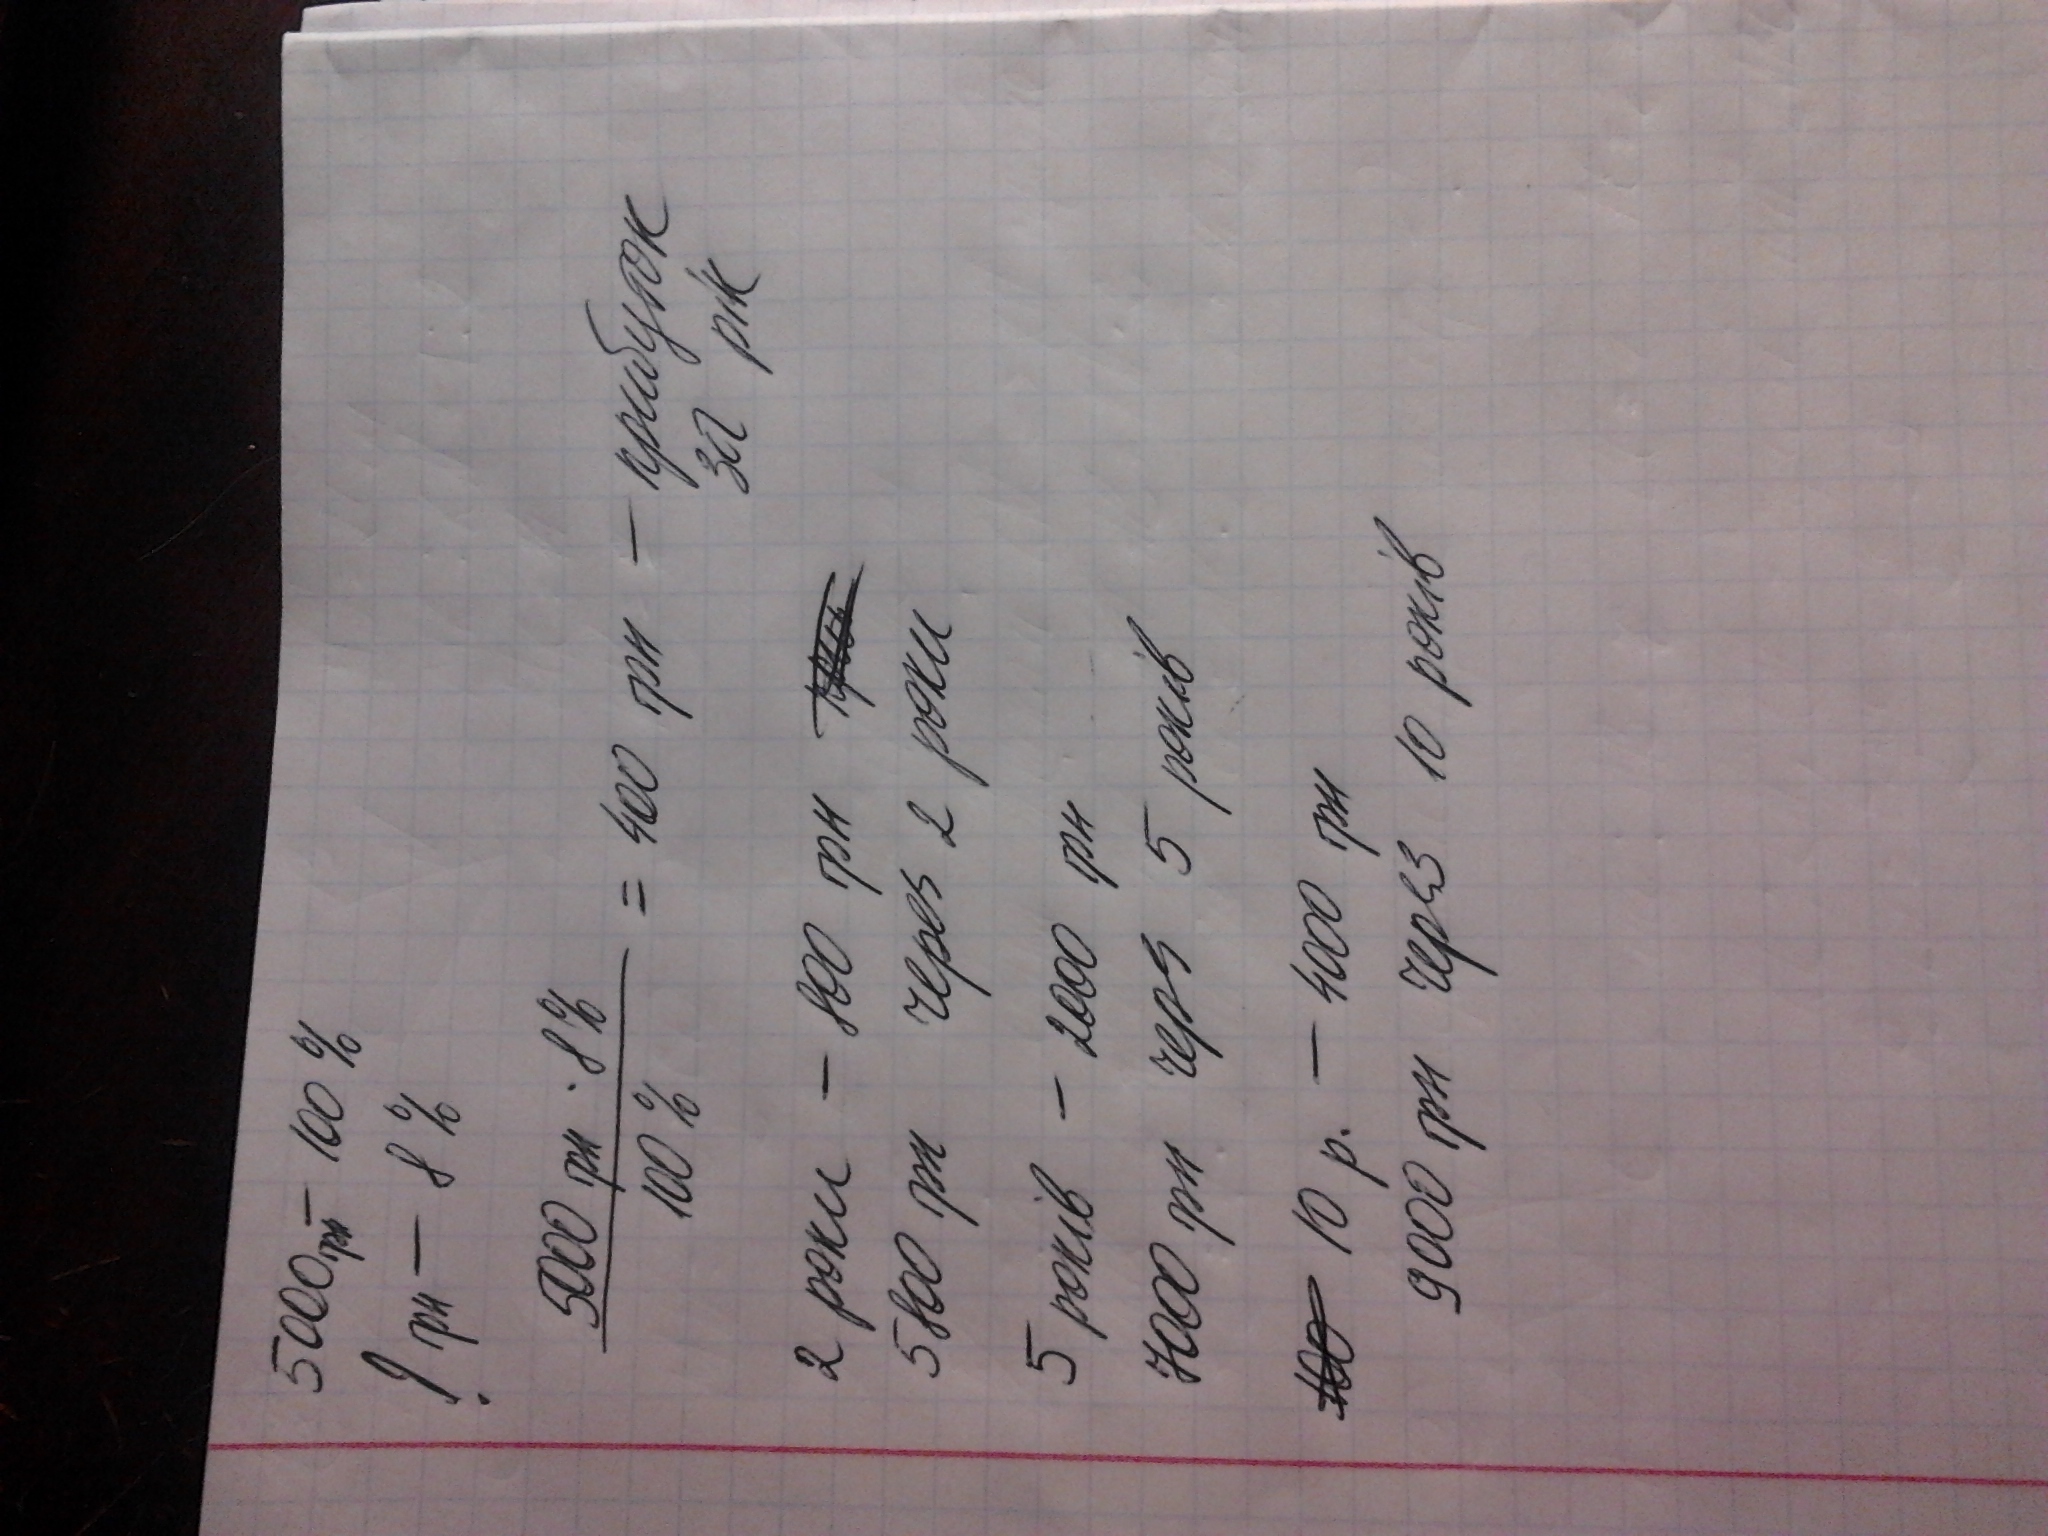 5000 грн - 100 %
? грн - 8 %
5000 грн · 8 %
100 %
= 400 грн - прибуток
за рік
2 роки - 800 грн
5800 грн через 2 роки
5 років - 2000 грн
7000 грн через 5 років
10 р. - 4000 грн
9000 грн через 10 років